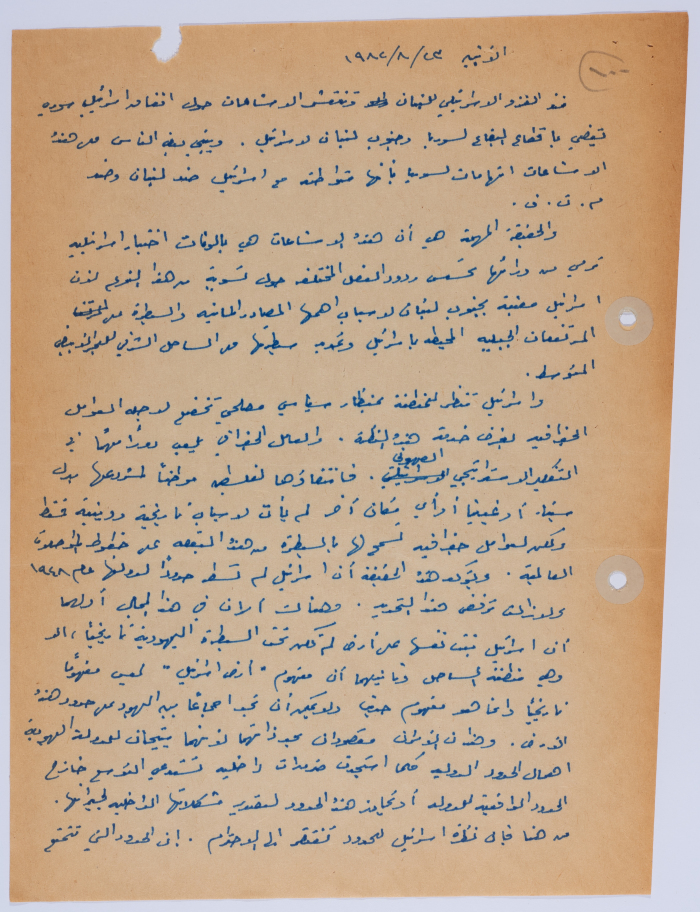 الاثنين ٢٣/٨/١٩٨٢
١٠٠
منذ الغزو الاسرائيلي للبنان وتنتشر الاشاعات حول اتفاق اسرائيلي سوري
تقضي باقتطاع البقاع لسوريا وجنوب لبنان لاسرائيل . ويبني بعض الناس على هذه
الاشاعات اتهامات لسوريا بأنها متواطئة مع اسرائيل ضد لبنان وضد
م . ت . ف .
والحقيقة المهمة هي أن هذه الاشاعات هي بالونات اختبار اسرائيلية
ترمي من ورائها تحسس ردود الفعل المختلفة حول تسوية من هذا النوع لأن
اسرائيل معنية بجنوب لبنان لأسباب اهمها المصادر المائية والسيطرة على
المرتفعات الجبلية المحيطة باسرائيل وتمديد سيطرتها على الساحل الشرقي للبحر الابيض
المتوسط .
واسرائيل تنظر للمنطقة بمنظار سياسي مصلحي تخضع لاجله العوامل
الجغرافية لغرض خدمة هذه النظرة . والعامل الجغرافي يلعب دوراً مهماً في
التفكير الاستراتيجي الصهيوني . فانتقاؤها لفلسطين موطناً لمشروعها بدل
سيناء أو غينيا أو أي مكان آخر لم يأت لاسباب تاريخية ودينية فقط
ولكن لعوامل جغرافية تسمح لها بالسيطرة من هذه البقعة على خطوط المواصلات
العالمية . ويؤكد هذه الحقيقة أن اسرائيل لم تسطر حدوداً لدولتها عام ١٩٤٨
ولا زالت ترفض هذا التحديد . وهناك أمران في هذا المجال أولهما
أن اسرائيل بنت نفسها على أرض لم تكن تحت السيطرة اليهودية تاريخياً ، الا
وهي منطقة الساحل وثانيهما أن مفهوم "أرض اسرائيل" ليس مفهوماً
تاريخياً وانما هو مفهوم ولا يمكن أن تجد اجماعاً بين اليهود على حدود هذه
الارض . وهذان الامران مقصودان بحد ذاتهما لأنهما يتيحان للدولة اليهودية
اهمال الحدود الدولية كلما استجدت ضرورات داخلية تستدعي التوسع خارج
الحدود الواقعية للدولة أو تجاوز هذه الحدود لتصدير مشكلاتها الداخلية لجيرانها .
من هنا فان نظرة اسرائيل للحدود تفتقر الى الاحترام . ان الحدود التي تتمتع